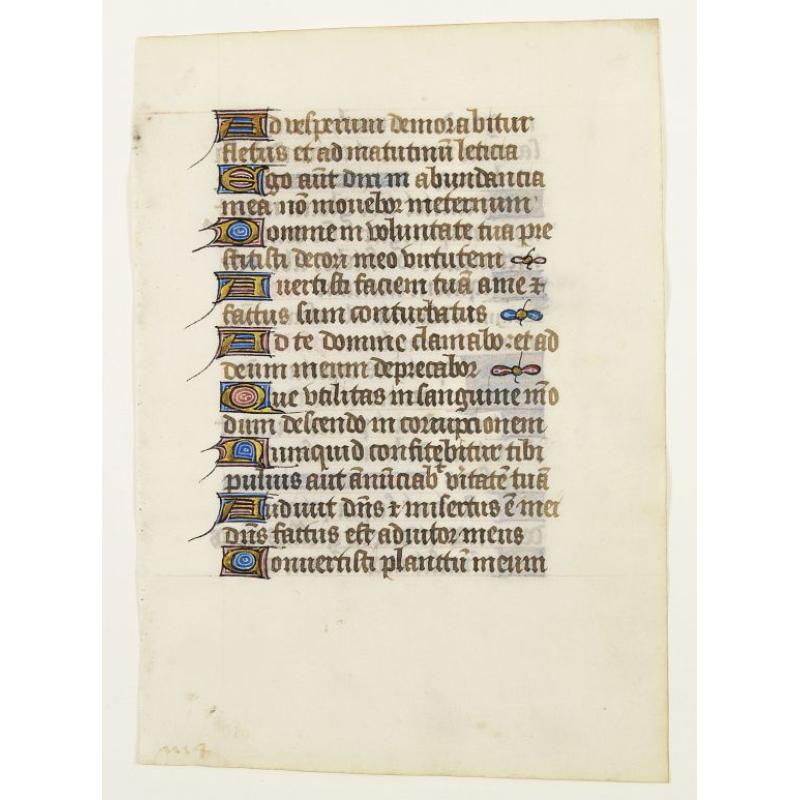 Ad vesperum demorabitur
fletus et ad matutinū leticia
Ego aūt dixi in abundancia
mea nō movebor in eternum
Domine in voluntate tua pre
stitisti decori meo virtutem
Avertisti faciem tuā a me ⁊
factus sum conturbatus
Ad te domine clamabo: et ad
deum meum deprecabor
Que vtilitas in sanguine m̄o
dum descendo in corrupcionem
Numquid confitębitur tibi
pulvis aut ānūciab̄ v̄itatē tuā
Audivit dn̄s ⁊ misertus ē mei
dn̄s factus est adiutor meus
Convertisti planctū meum